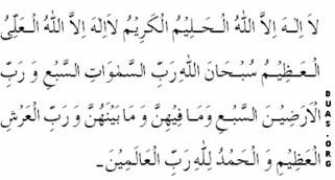 لاَ اِلٰـهَ اِلاَّ اللهُ الْـحَـلِيْمُ الْكَرِيْمُ لاَاِلٰهَ اِلاَّ اللهُ الْـعَلِّىُ
الْـعَـظِيْـمُ سُبْـحَانَ اللهِ رَبِّ السَّمٰوَاتِ السَّبْعِ وَ رَبِّ
الْاَرَضِيْـنَ السَّبْـعِ وَمَـا فِيْهِنَّ وَ مَا بَيْنَهُنَّ وَ رَبِّ الْعَرْشِ
الْعَظِيْمِ وَ الْحَمْدُ لِلّٰهِ رَبِّ الْعَالَمِيْنَ۔
DUAS.ORG